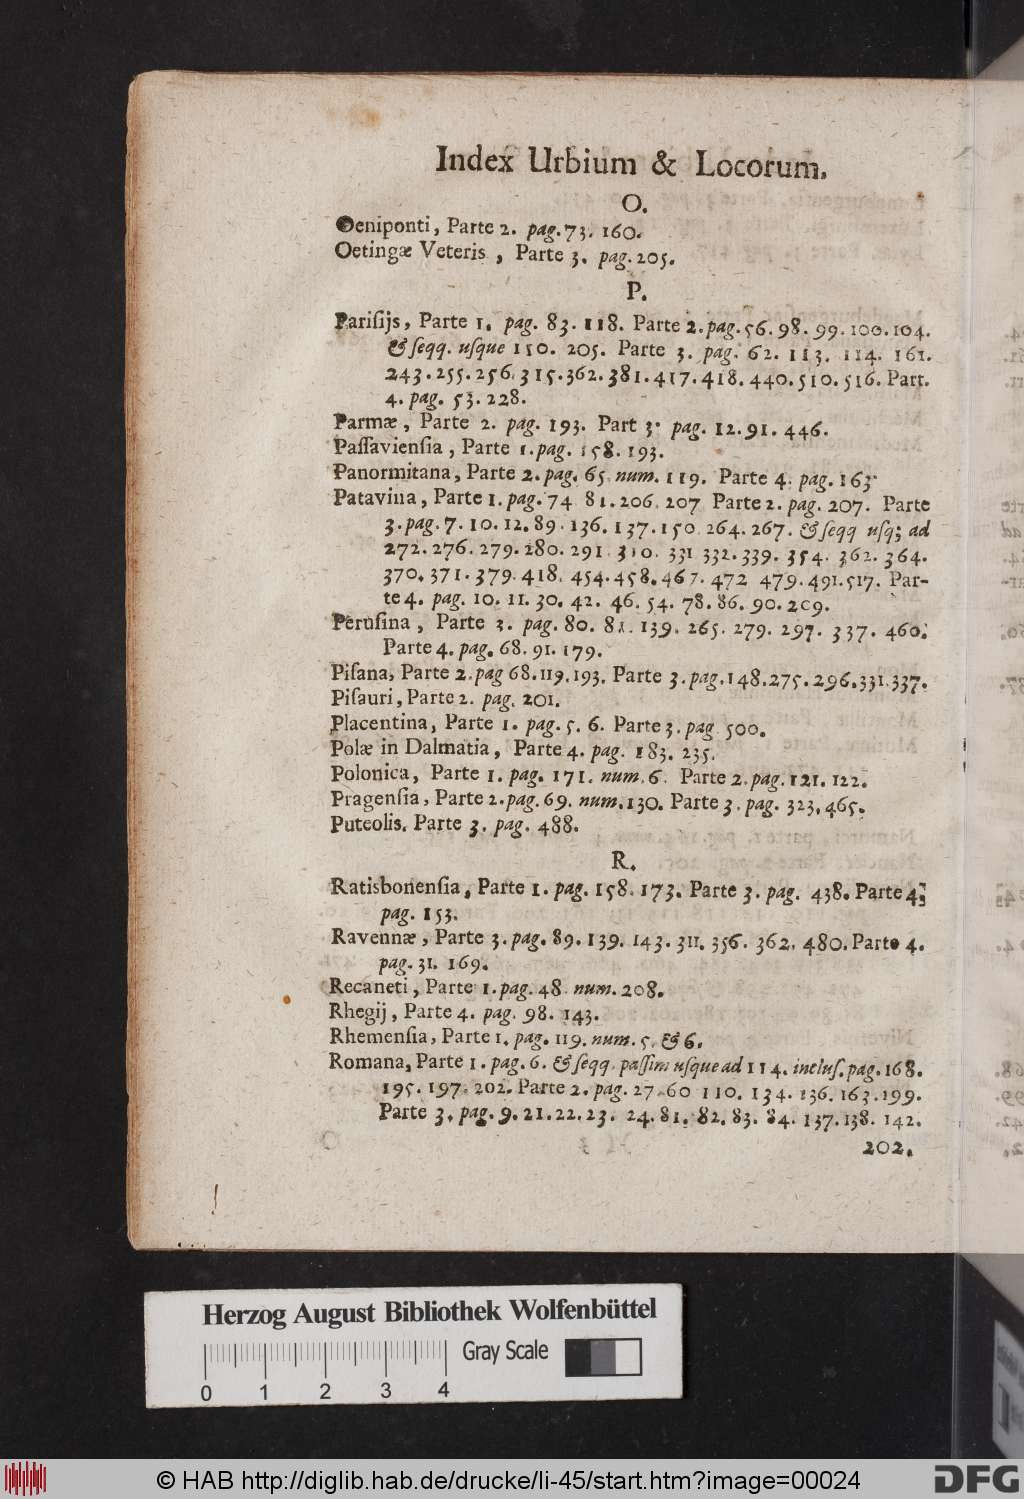 Index Urbium & Locorum.
O.
Oeniponti, Parte 2. pag. 73. 160.
Oetingæ Veteris, Parte 3. pag. 205.
P.
Pariſijs, Parte 1. pag. 83. 118. Parte 2. pag. 56. 98. 99. 100. 104.
& ſeqq. uſque 110. 205. Parte 3. pag. 62. 113. 114. 161.
243. 255. 256. 315. 362. 381. 417. 418. 440. 510. 516. Part.
4. pag. 53. 228.
Parmæ, Parte 2. pag. 193. Part 3. pag. 12. 91. 446.
Paſſavienſia, Parte 1. pag. 158. 193.
Panormitana, Parte 2. pag. 65. num. 119. Parte 4. pag. 163.
Patavina, Parte 1. pag. 74 81. 206. 207 Parte 2. pag. 207. Parte
3. pag. 7. 10. 12. 89. 136. 137. 150. 264. 267. & ſeqq uſq; ad
272. 276. 279. 280. 291. 310. 331 332. 339. 354. 362. 364.
370. 371. 379. 418. 454. 458. 467. 472 479. 491. 517. Par-
te 4. pag. 10. 11. 30. 42. 46. 54. 78. 86. 90. 209.
Peruſina, Parte 3. pag. 80. 81. 139. 265. 279. 297. 337. 460.
Parte 4. pag. 68. 91. 179.
Piſana, Parte 2. pag 68. 119. 193. Parte 3. pag. 148. 275. 296. 331. 337.
Piſauri, Parte 2. pag. 201.
Placentina, Parte 1. pag. 5. 6. Parte 3. pag 500.
Polæ in Dalmatia, Parte 4. pag. 183. 235.
Polonica, Parte 1. pag. 171. num. 6. Parte 2. pag. 121. 122.
Pragenſia, Parte 2. pag. 69. num. 130. Parte 3. pag. 323. 465.
Puteolis. Parte 3. pag. 488.
R.
Ratisbonenſia, Parte 1. pag. 158. 173. Parte 3. pag. 438. Parte 4.
pag. 153.
Ravennæ, Parte 3. pag. 89. 139. 143. 311. 356. 362. 480. Parte 4.
pag. 31. 169.
Recaneti, Parte 1. pag. 48 num. 208.
Rhegij, Parte 4. pag. 98. 143.
Rhemenſia, Parte 1. pag. 119. num. 5. & 6.
Romana, Parte 1. pag. 6. & ſeqq. paſſim uſque ad 114. incluſ. pag. 168.
195. 197. 202. Parte 2. pag. 27. 60 110. 134. 136. 163. 199.
Parte 3. pag. 9. 21. 22. 23. 24. 81. 82. 83. 84. 137. 138. 142.
202.
Herzog August Bibliothek Wolfenbüttel
Gray Scale
0 1 2 3 4
© HAB http://diglib.hab.de/drucke/li-45/start.htm?image=00024
DFG